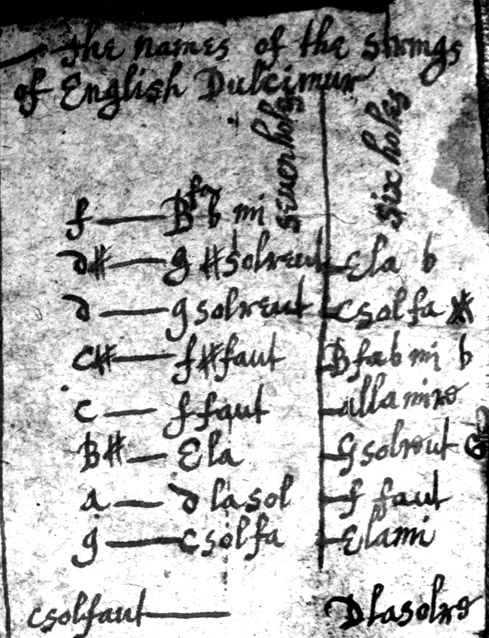 the names of the strings
of English Dulcimur
seuen holes
six holes
f — B fa b mi
d# — g #solreut — Ela b
d — g solreut — csolfa #
c# — f#faut — Bfabmi b
c — f faut — allamire
B# — Ela — Gsolreut
a — d lasol — f faut
g — csolfa — Elami
csolfaut — Dlasolre